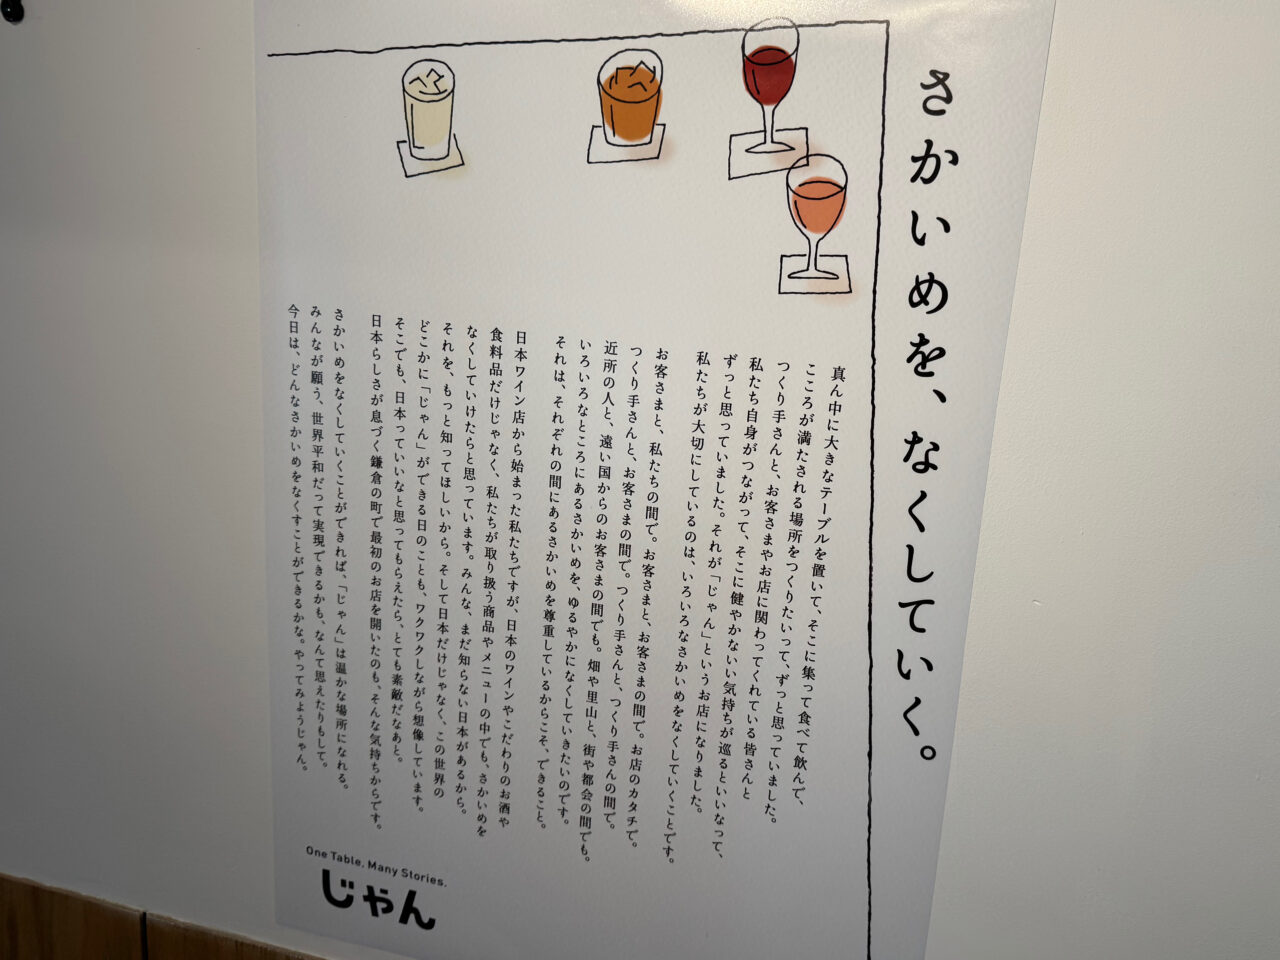 さかいめを、なくしていく。
真ん中に大きなテーブルを置いて、そこに集って食べて飲んで、
こころが満たされる場所をつくりたいって、ずっと思っていました。
つくり手さんと、お客さまやお店に関わってくれている皆さんと
私たち自身がつながって、そこに健やかないい気持ちが巡るといいなって、
ずっと思っていました。それが「じゃん」というお店になりました。
私たちが大切にしているのは、いろいろなさかいめをなくしていくことです。
お客さまと、私たちの間で。お客さまと、お客さまの間で。お店のカタチで。
つくり手さんと、お客さまの間で。つくり手さんと、つくり手さんの間で。
近所の人と、遠い国からのお客さまの間でも。畑や里山と、街や都会の間でも。
いろいろなところにあるさかいめを、ゆるやかになくしていきたいのです。
それは、それぞれの間にあるさかいめを尊重しているからこそ、できること。
日本ワイン店から始まった私たちですが、日本のワインやこだわりのお酒や
食料品だけじゃなく、私たちが取り扱う商品やメニューの中でも、さかいめを
なくしていけたらと思っています。みんな、まだ知らない日本があるから。
それを、もっと知ってほしいから。そして日本だけじゃなく、この世界の
どこかに「じゃん」ができる日のことも、ワクワクしながら想像しています。
そこでも、日本っていいなと思ってもらえたら、とても素敵だなあと。
日本らしさが息づく鎌倉の町で最初のお店を開いたのも、そんな気持ちからです。
さかいめをなくしていくことができれば、「じゃん」は温かな場所になれる。
みんなが願う、世界平和だって実現できるかも、なんて思えたりもして。
今日は、どんなさかいめをなくすことができるかな。やってみようじゃん。
One Table, Many Stories.
じゃん